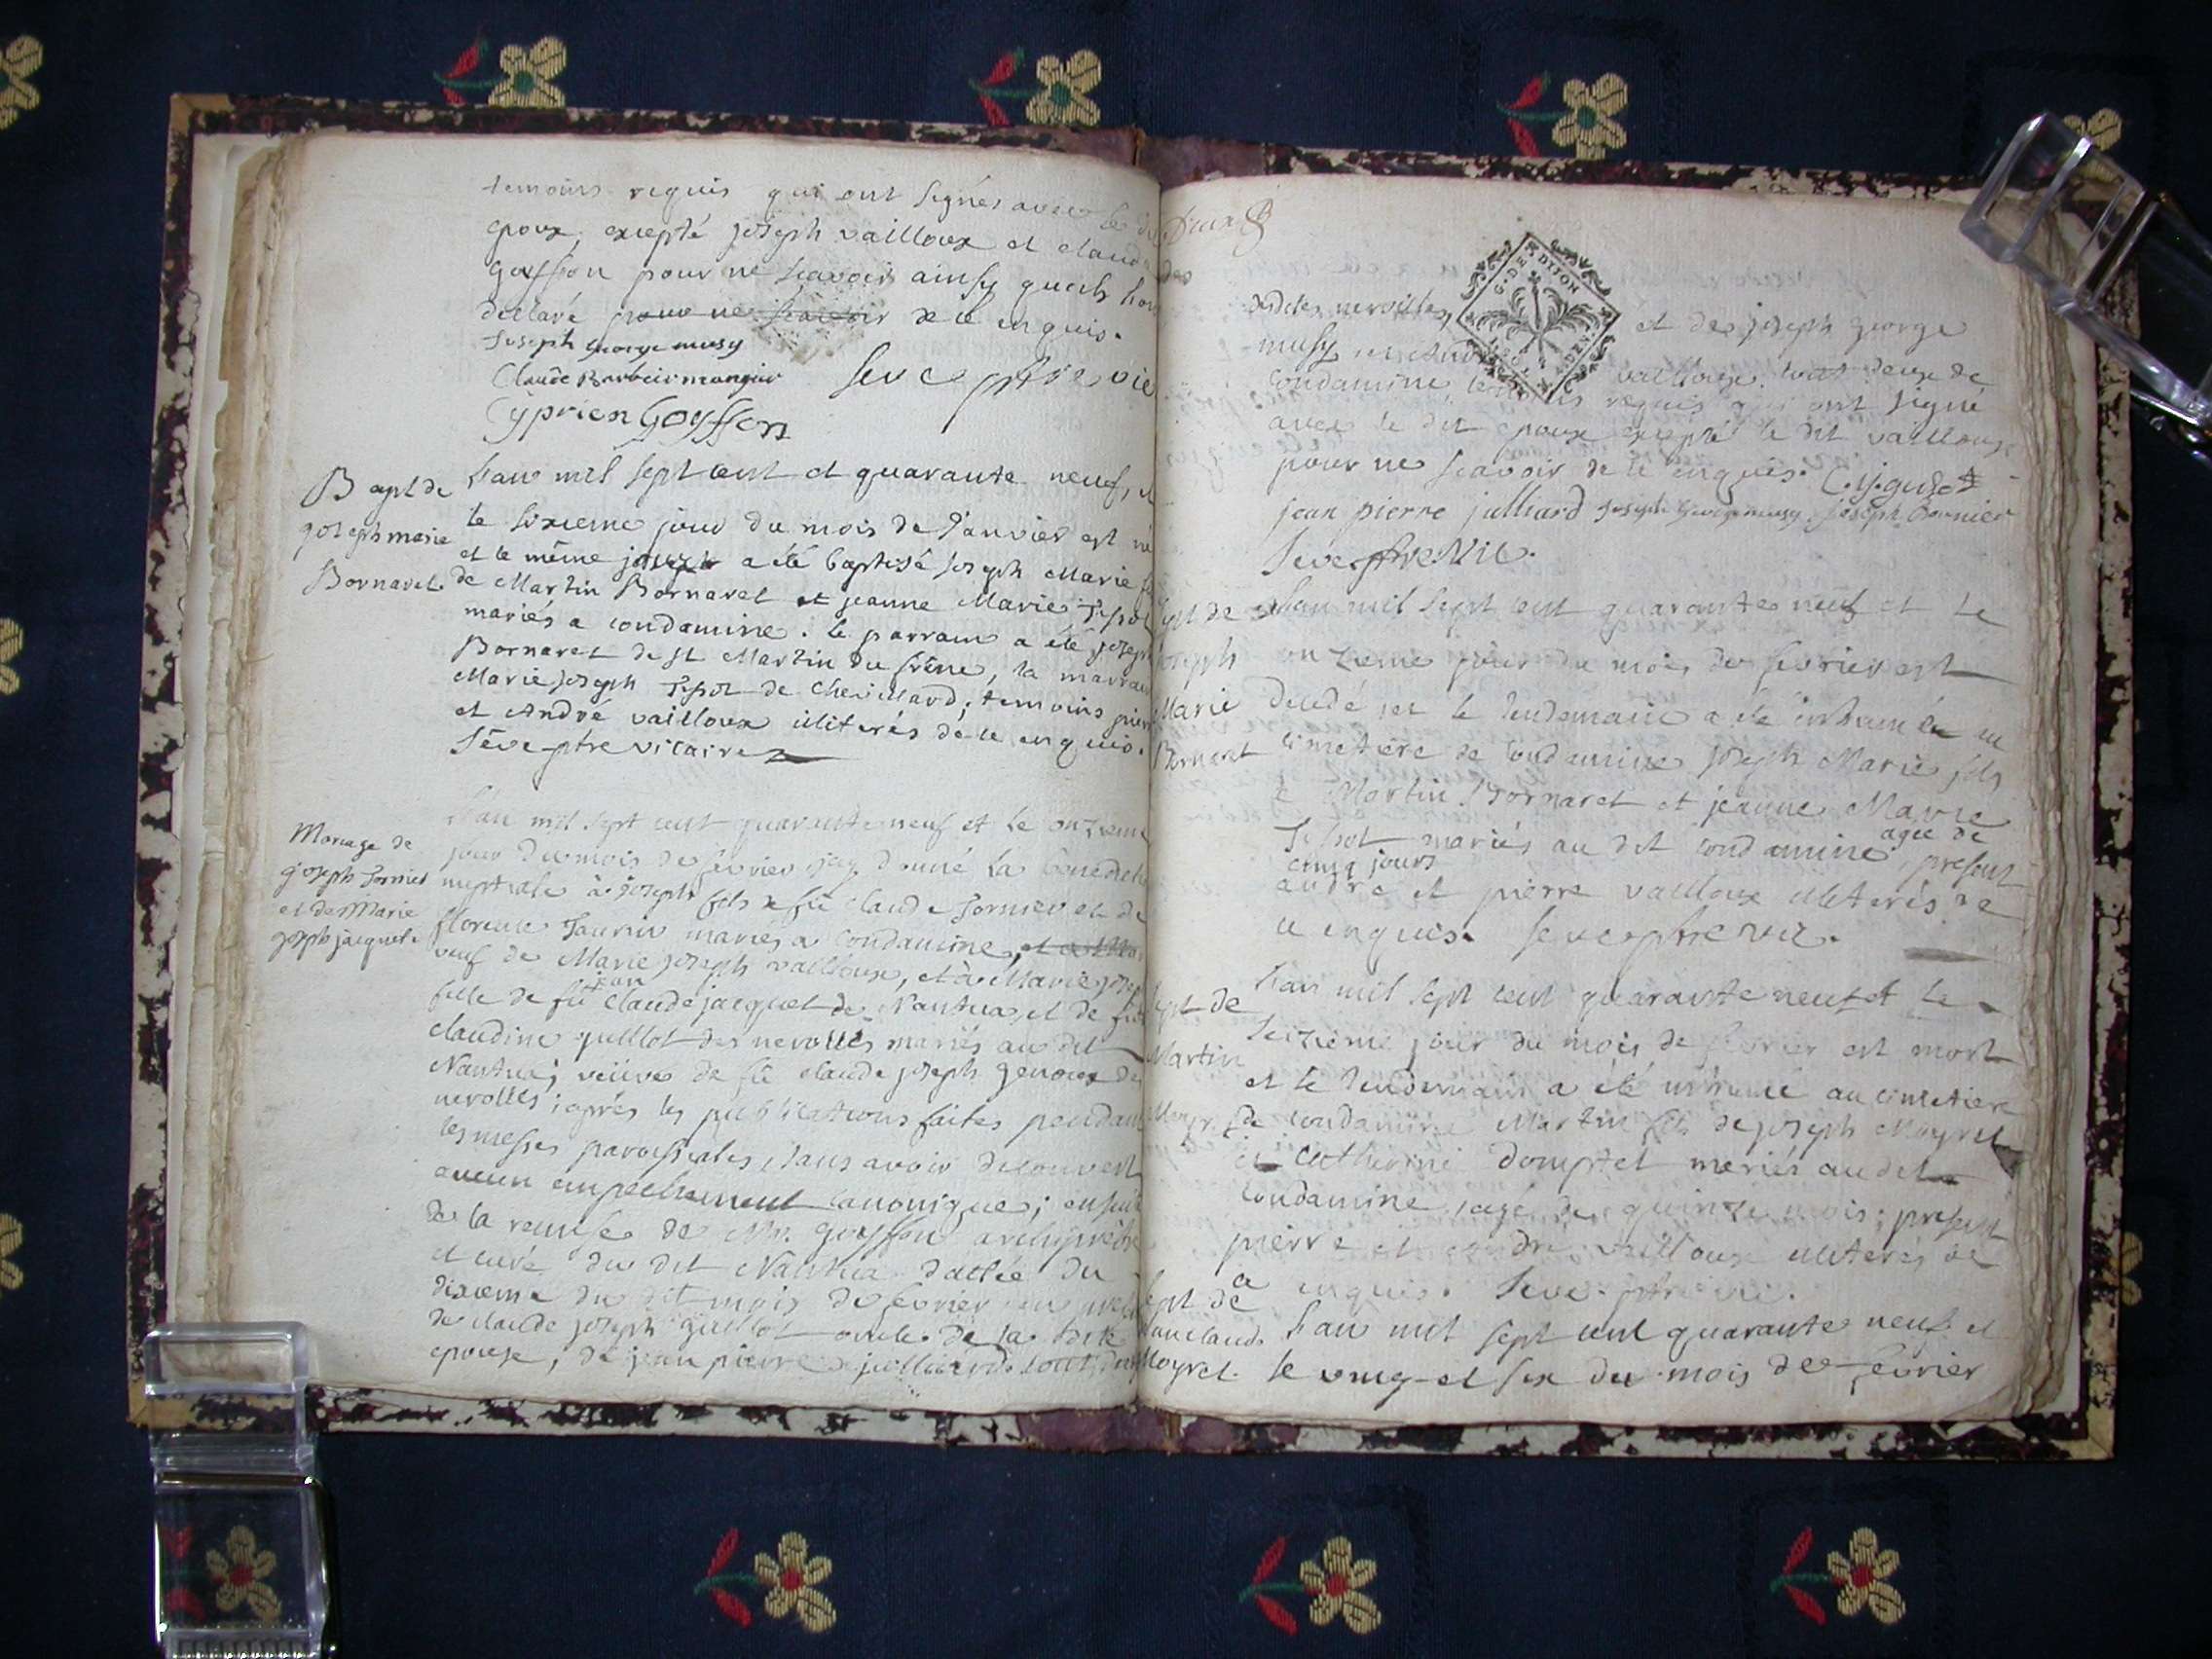 temoins requis qui ont signés avec le dit
epoux, excepté joseph vailloux et claude
goyffon pour ne scavoir ainsy quils l'ont
declaré pour ne scavoir de ce enquis.
Joseph george musy
Claude Barbeir mangier Seve ptre vic
Cÿprien Goÿffon
Bapt de
joseph marie
Bornaret.
L'an mil sept cent et quarante neuf, et
le sixieme jour du mois de Janvier est né
et le même jour a été baptisé joseph Marie fils
de Martin Bornaret et jeanne Marie Tissot
mariés a condamine. le parrain a été joseph
Bornaret de st Martin du frêne, la marraine
Marie joseph Tissot de Chevillard; temoins pierre
et André vailloux iliterés de ce enquis.
Sêve ptre vicaire
Mariage de
joseph Sornier
et de Marie
joseph jacquet.
L'an mil sept cent quarante neuf et le onzieme
jour du mois de fevrier jay donné la benediction
nuptiale à joseph fils de fû claude Sornier et de
florence Tavrin mariés a condamine,
veuf de Marie joseph vailloux, et à Marie joseph
fille de fû jean claude jacquet de Nantua, et de fue
claudine guillot des nerolles mariés au dit
Nantua; veüve de fû claude joseph genoux des
nerolles; aprés les publications faites pendant
les messes paroissiales sans avoir decouvert
aucun empêchement canonique; ensuite
de la remise de Mr. goyffon archiprêtre
et curé du dit Nantua dattée du
dixieme du dit mois de fevrier en presence
de claude joseph guillot oncle de la dite
epouse, de jean pierre julliard tout deux
deux
des
des dites nerolles, et de joseph george
musy et andré vailloux tout deux de
condamine, temoins requis qui ont signé
avec le dit epoux excepté le dit vailloux
pour ne scavoir de ce enquis. C. j. guillot
jean pierre julliard joseph george musy. joseph Sornier
Seve ptre vic.
Sept de
joseph
Marie
Bornaret
L'an mil sept cent quarante neuf et le
onzieme jour du mois de fevrier est
decedé et le lendemain a été inhumé au
cimetiere de condamine joseph Marie fils
de Martin Bornaret et jeanne Marie
Tissot mariés au dit condamine agée de
cinq jours, present
andré et pierre vailloux iliterés de
ce enquis. Seve ptre vic.
Sept de
Martin
Moyret
L'an mil sept cent quarante neuf et le
seizieme jour du mois de fevrier est mort
et le lendemain a été inhumé au cimetiere
de condamine Martin fils de joseph Moyret
et Catherine Domptet mariés au dit
condamine, agé de quinze mois; present
pierre et andré vailloux iliterés de
ce enquis. Seve ptre vic.
Sept de
jean claude
Moyret.
L'an mil sept cent quarante neuf et
le vingt et six du mois de fevrier